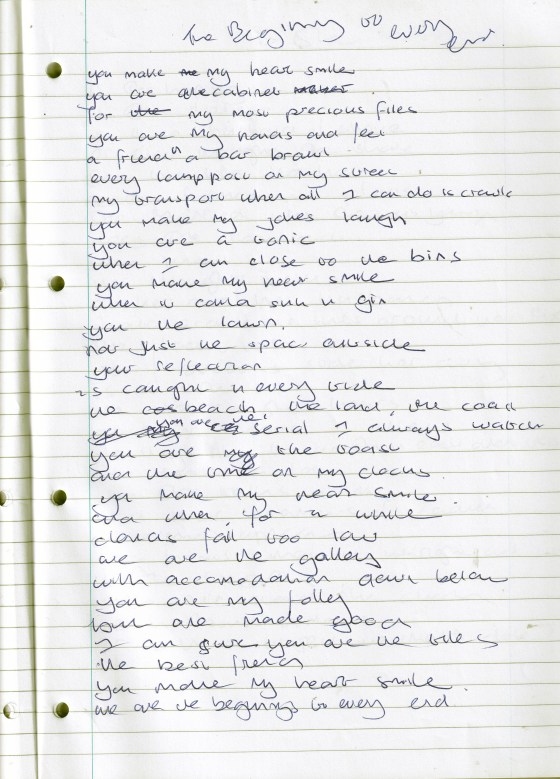 The Beginning to every end
you make me my heart smile
you are the cabinet
for the my most precious files
you are my hands and feet
a friend in a bar brawl
every lamppost on my street
my transport when all I can do is crawl
you make my jokes laugh
you are a tonic
when I am close to the bins
you make my heart smile
when it could sink in gin
you the lawn,
not just the space outside
your reflection
is caught in every tide
the beach, the land, the coast
you are the serial I always watch
you are my the toast
and the time on my clocks
you make my heart smile
and when, for a while
clouds fall too low
we are the galley
with accomodation down below
you are my folley
but are made good
I can give you are the tiles
the best friend
you make my heart smile.
we are the beginning to every end